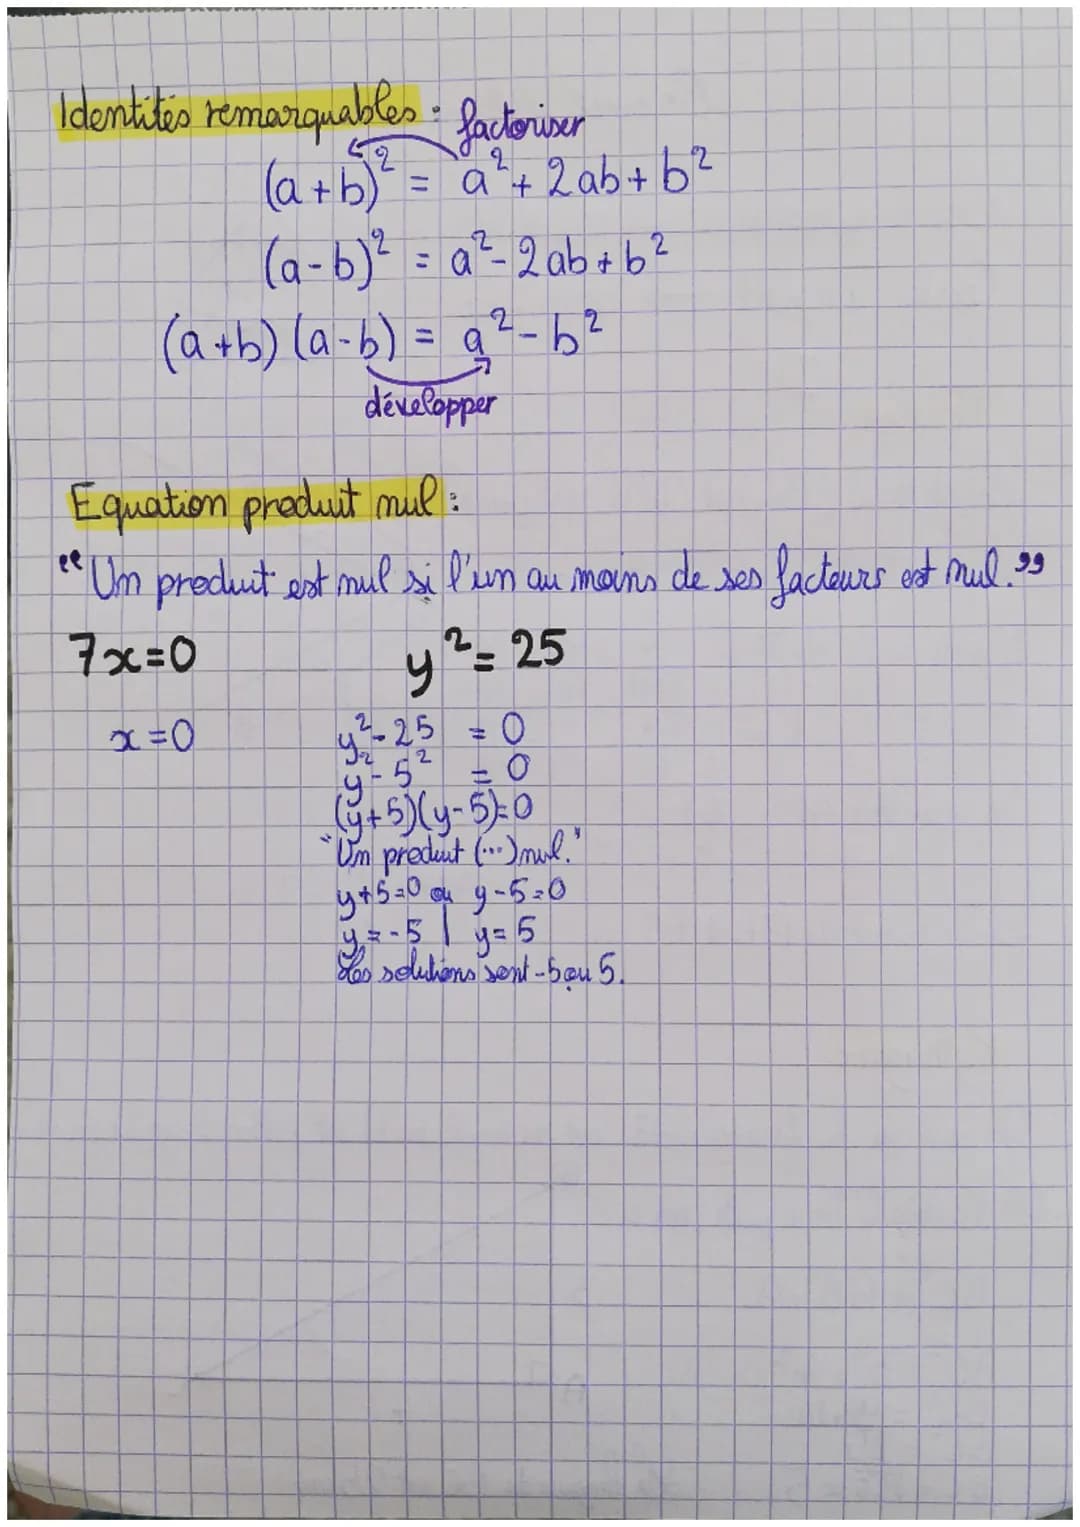 Identités remarquables : factoriser
(a+b)² = a² + 2ab + b²
(a-b)² = a² - 2ab + b²
(a+b) (a-b) = a² - b²
développer
Equation produit nul :
"Un produit est nul si l'un au moins de ses facteurs est nul."
7x=0 y² = 25
x=0 y² - 25 = 0
y² - 5² = 0
(y+5)(y-5)=0
"Un produit (...) nul."
y+5=0 ou y-5=0
y=-5 | y=5
Les solutions sont -5 ou 5.